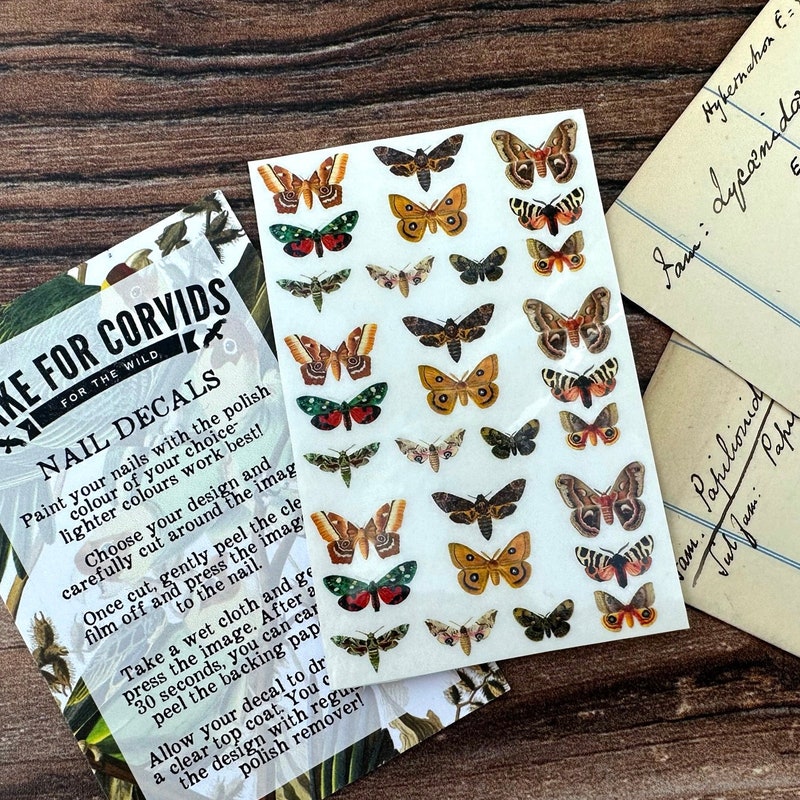 KE FOR CORVIDS
FOR THE WILD
NAIL DECALS
Paint your nails with the polish
colour of your choice-
lighter colours work best!
Choose your design and
carefully cut around the imag
Once cut, gently peel the cle
film off and press the image
to the nail.
Take a wet cloth and ge
press the image. After a
30 seconds, you can car
peel the backing pap
Allow your decal to dr
a clear top coat. You c
the design with regu
polish remover!
Hybernation E =
Fam: Lycænida
E
Fam. Papilionid
Sub fam: Papi